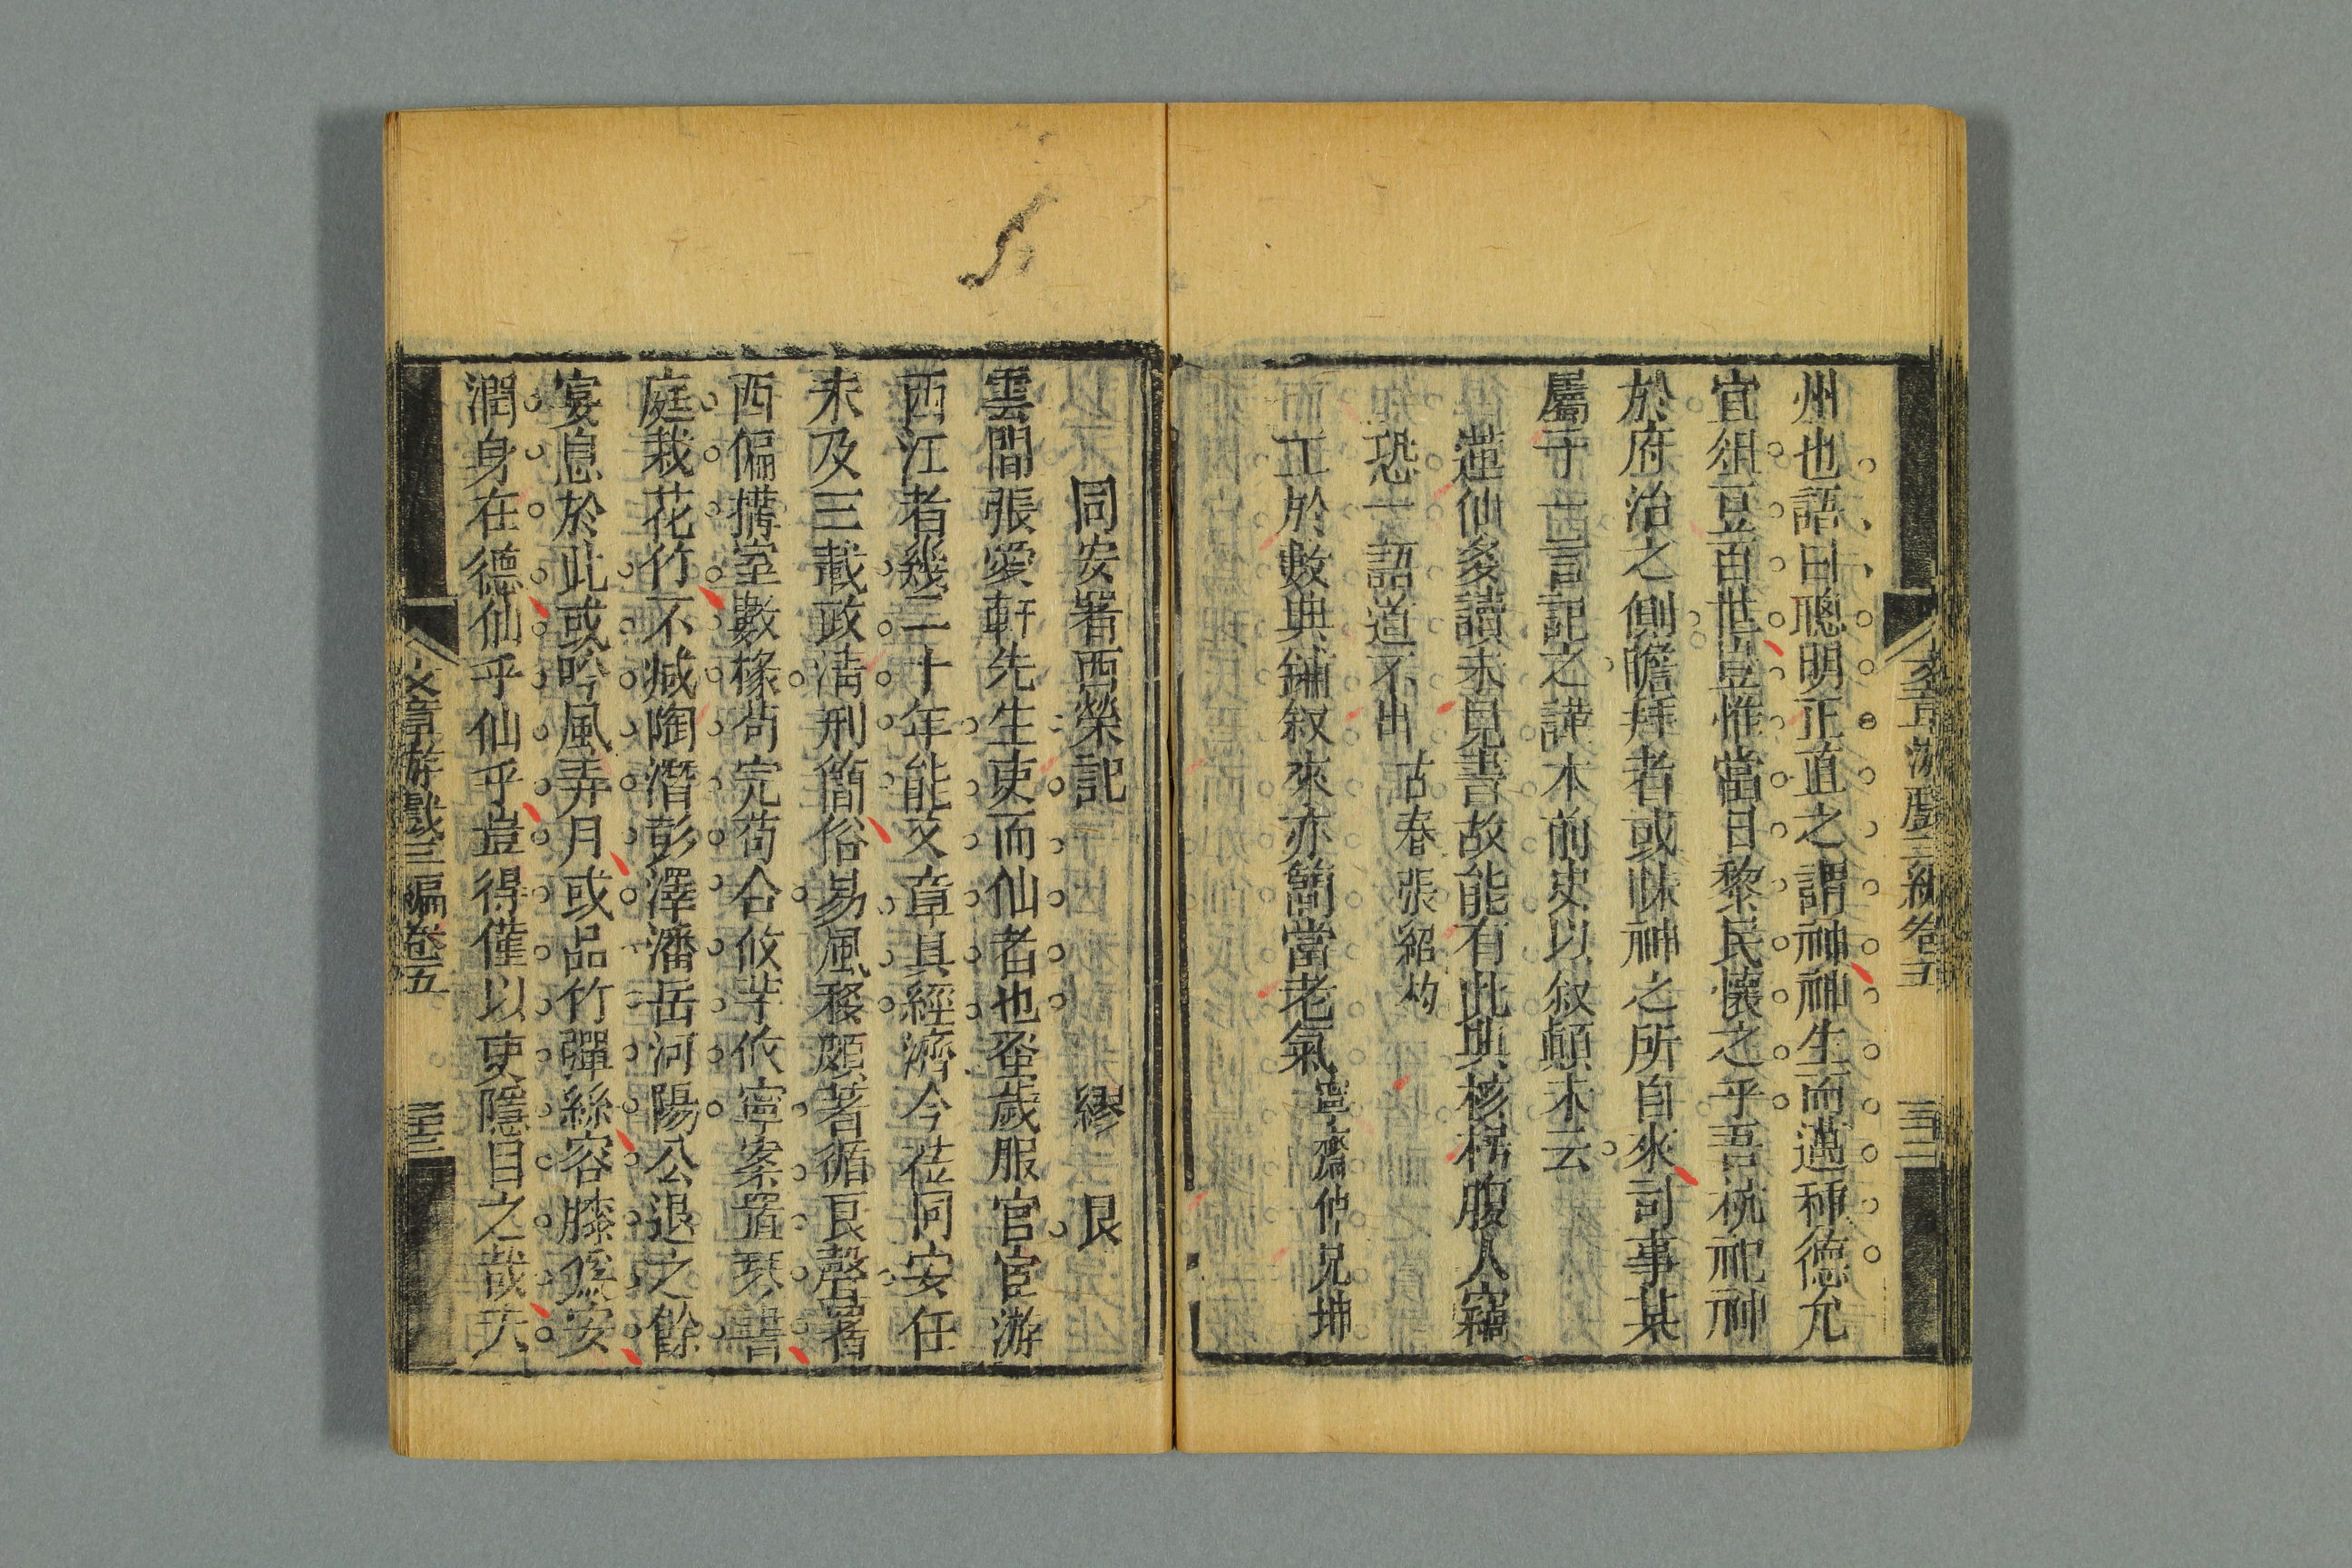 文章游戲三編卷五
三十二
州也語曰聰明正直之謂神神生而邁種德允
宜俎豆百世豈惟當日黎民懷之乎吾杭祀神
於府治之側瞻拜者或昧神之所自來司事某
屬于一言記之謹本前史以叙顛末云
蓮仙多讀未見書故能有此典核枵腹人窺
恐一語道不出 古春張紹灼
工於數典鋪叙來亦簡當老氣 寧齋仲兄坤
同安署西榮記 繆艮
雲間張愛軒先生吏而仙者也蚤歲服官宦游
西江者幾二十年能文章具經濟今莅同安任
未及三載政淸刑簡俗易風移頗著循良聲署
西偏搆室數椽苟完苟合攸芋攸寧案置琴書
庭栽花竹不減陶潛彭澤潘岳河陽公退之餘
宴息於此或吟風弄月或品竹彈絲容膝爲安
潤身在德仙乎仙乎豈得僅以吏隱目之哉夫
文章游戲三編卷五
三十三